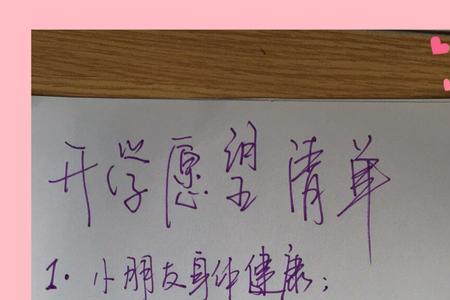 开学愿望清单
1. 小朋友身体健康；